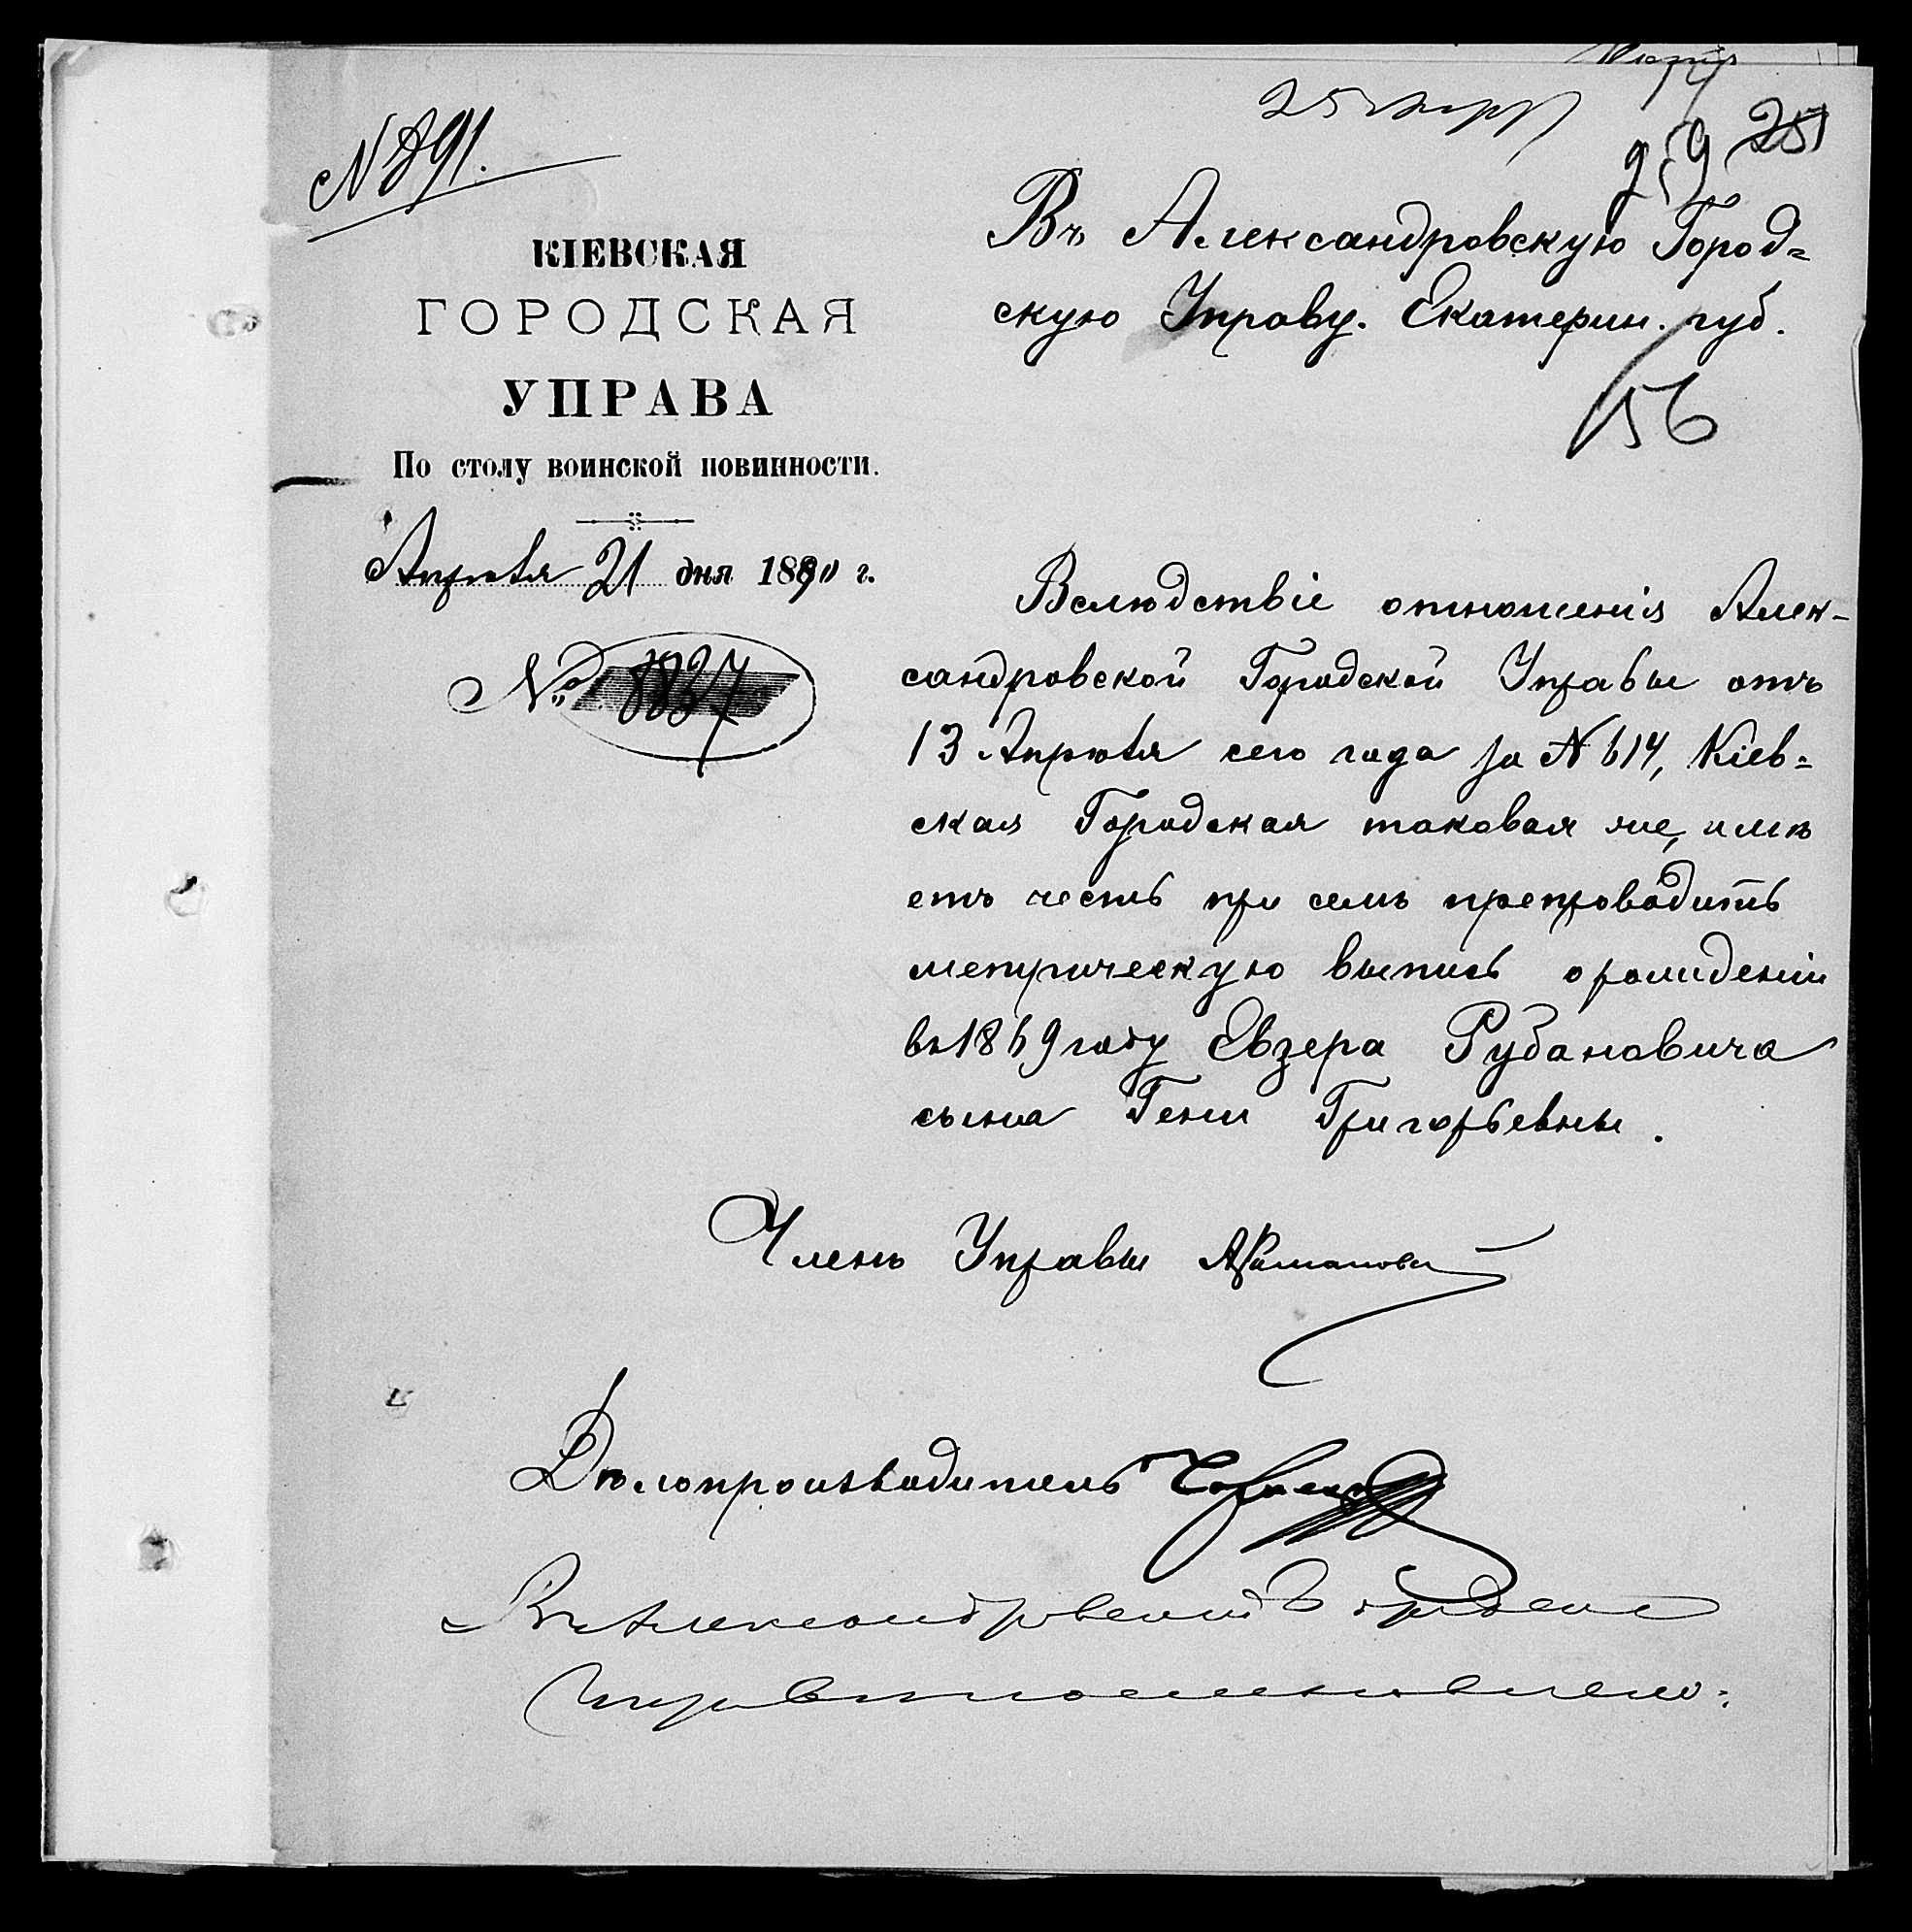 25
29 251
№ 891.
КІЕВСКАЯ
ГОРОДСКАЯ
УПРАВА
По столу воинской повинности.
Апрѣля 21 дня 1890 г.
№ 8837
Въ Александровскую Город=
скую Управу. Екатерин. губ.
156
Вслѣдствіе отношенія Алек-
сандровской Городской Управы отъ
13 Апрѣля сего года за № 614, Кіев=
ская Городская таковая же, имѣ
етъ честь при семъ препроводить
метрическую выпись о рожденіи
въ 1869 году Евзера Рубановича
сына Гени Григорьевны.
Членъ Управы
Дѣлопроизводитель
Въ Александровской